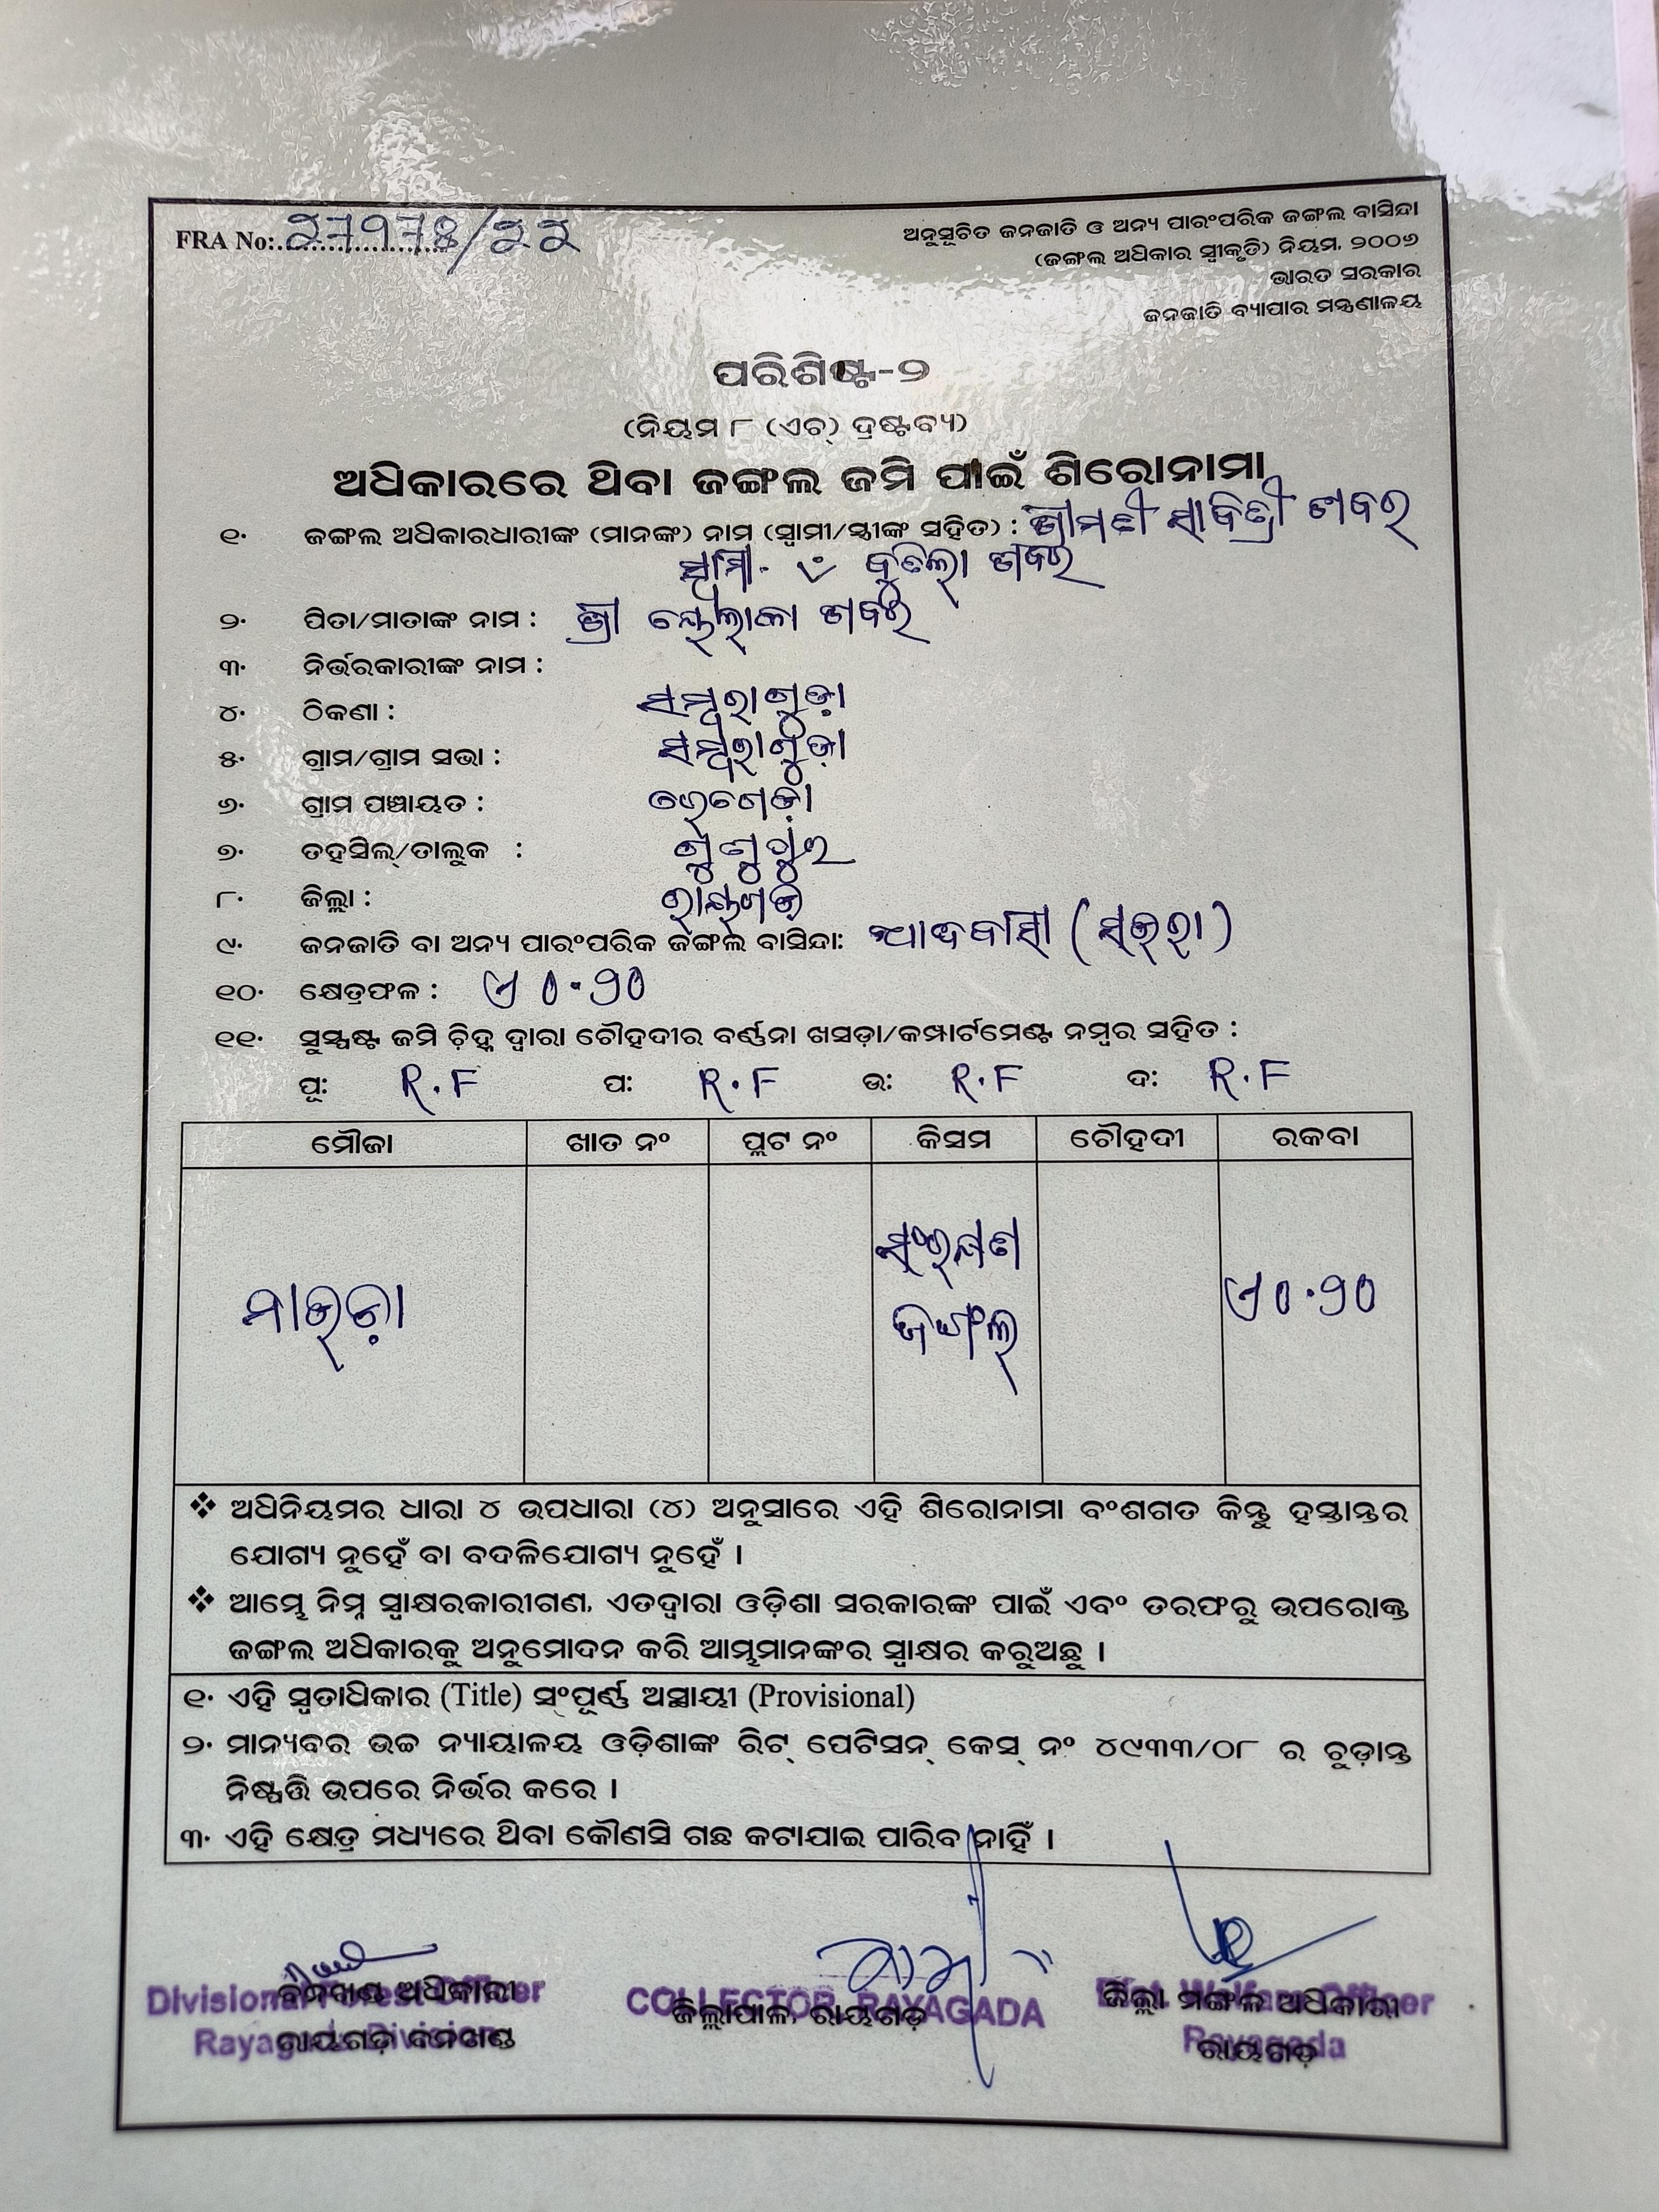 FRA No:
ଅନୁସୂଚିତ ଜନଜାତି ଓ ଅନ୍ୟ ପାରଂପରିକ ଜଙ୍ଗଲ ବାସିନ୍ଦା
(ଜଙ୍ଗଲ ଅଧିକାର ସ୍ୱୀକୃତି) ନିୟମ, ୨୦୦୬
ଭାରତ ସରକାର
ଜନଜାତି ବ୍ୟାପାର ମନ୍ତ୍ରଣାଳୟ
ପରିଶିଷ୍ଟ-୨
(ନିୟମ ୮ (ଏଚ୍) ଦ୍ରଷ୍ଟବ୍ୟ)
ଅଧିକାରରେ ଥିବା ଜଙ୍ଗଲ ଜମି ପାଇଁ ଶିରୋନାମା
୧. ଜଙ୍ଗଲ ଅଧିକାରଧାରୀଙ୍କ (ମାନଙ୍କ) ନାମ (ସ୍ୱାମୀ/ସ୍ତ୍ରୀଙ୍କ ସହିତ) : ଶ୍ରୀମତୀ ସାବିତ୍ରୀ ଶବର
ସ୍ୱାମୀ- ଶବର
୨. ପିତା/ମାତାଙ୍କ ନାମ : ଶ୍ରୀ ଶବର
୩. ନିର୍ଭରକାରୀଙ୍କ ନାମ :
୪. ଠିକଣା : ସମ୍ବରାଗୁଡ଼ା
୫. ଗ୍ରାମ/ଗ୍ରାମ ସଭା : ସମ୍ବରାଗୁଡ଼ା
୬. ଗ୍ରାମ ପଞ୍ଚାୟତ :
୭. ତହସିଲ୍/ତାଲୁକ : ଗୁଣୁପୁର
୮. ଜିଲ୍ଲା : ରାୟଗଡ଼
୯. ଜନଜାତି ବା ଅନ୍ୟ ପାରଂପରିକ ଜଙ୍ଗଲ ବାସିନ୍ଦା: ଆଦିବାସୀ (ସଉରା)
୧୦. କ୍ଷେତ୍ରଫଳ : ଏ ୦.୨୦
୧୧. ସୁସ୍ପଷ୍ଟ ଜମି ଚିହ୍ନ ଦ୍ୱାରା ଚୌହଦୀର ବର୍ଣ୍ଣନା ଖସଡ଼ା/କମ୍ପାର୍ଟମେଣ୍ଟ ନମ୍ବର ସହିତ :
ପୂ: R.F ପ: R.F ଉ: R.F ଦ: R.F
ମୌଜା ଖାତ ନଂ ପ୍ଲଟ ନଂ କିସମ ଚୌହଦୀ ରକବା
ସଂରକ୍ଷଣ
ଜଙ୍ଗଲ ଏ ୦.୨୦
❖ ଅଧିନିୟମର ଧାରା ୪ ଉପଧାରା (୪) ଅନୁସାରେ ଏହି ଶିରୋନାମା ବଂଶଗତ କିନ୍ତୁ ହସ୍ତାନ୍ତର
ଯୋଗ୍ୟ ନୁହେଁ ବା ବଦଳିଯୋଗ୍ୟ ନୁହେଁ ।
❖ ଆମ୍ଭେ ନିମ୍ନ ସ୍ୱାକ୍ଷରକାରୀଗଣ, ଏତଦ୍ୱାରା ଓଡ଼ିଶା ସରକାରଙ୍କ ପାଇଁ ଏବଂ ତରଫରୁ ଉପରୋକ୍ତ
ଜଙ୍ଗଲ ଅଧିକାରକୁ ଅନୁମୋଦନ କରି ଆମ୍ଭମାନଙ୍କର ସ୍ୱାକ୍ଷର କରୁଅଛୁ ।
୧. ଏହି ସ୍ୱତାଧିକାର (Title) ସଂପୂର୍ଣ୍ଣ ଅସ୍ଥାୟୀ (Provisional)
୨. ମାନ୍ୟବର ଉଚ୍ଚ ନ୍ୟାୟାଳୟ ଓଡ଼ିଶାଙ୍କ ରିଟ୍ ପେଟିସନ୍ କେସ୍ ନଂ ୪୯୩୩/୦୮ ର ଚୁଡ଼ାନ୍ତ
ନିଷ୍ପତ୍ତି ଉପରେ ନିର୍ଭର କରେ ।
୩. ଏହି କ୍ଷେତ୍ର ମଧ୍ୟରେ ଥିବା କୌଣସି ଗଛ କଟାଯାଇ ପାରିବ ନାହିଁ ।
Divisional Forest Officer COLLECTOR, RAYAGADA Dist. Welfare Officer
ବନଖଣ୍ଡ ଅଧିକାରୀ ଜିଲ୍ଲାପାଳ, ରାୟଗଡ଼ ଜିଲ୍ଲା ମଙ୍ଗଳ ଅଧିକାରୀ
Rayagada Division Rayagada
ରାୟଗଡ଼ ବନଖଣ୍ଡ ରାୟଗଡ଼